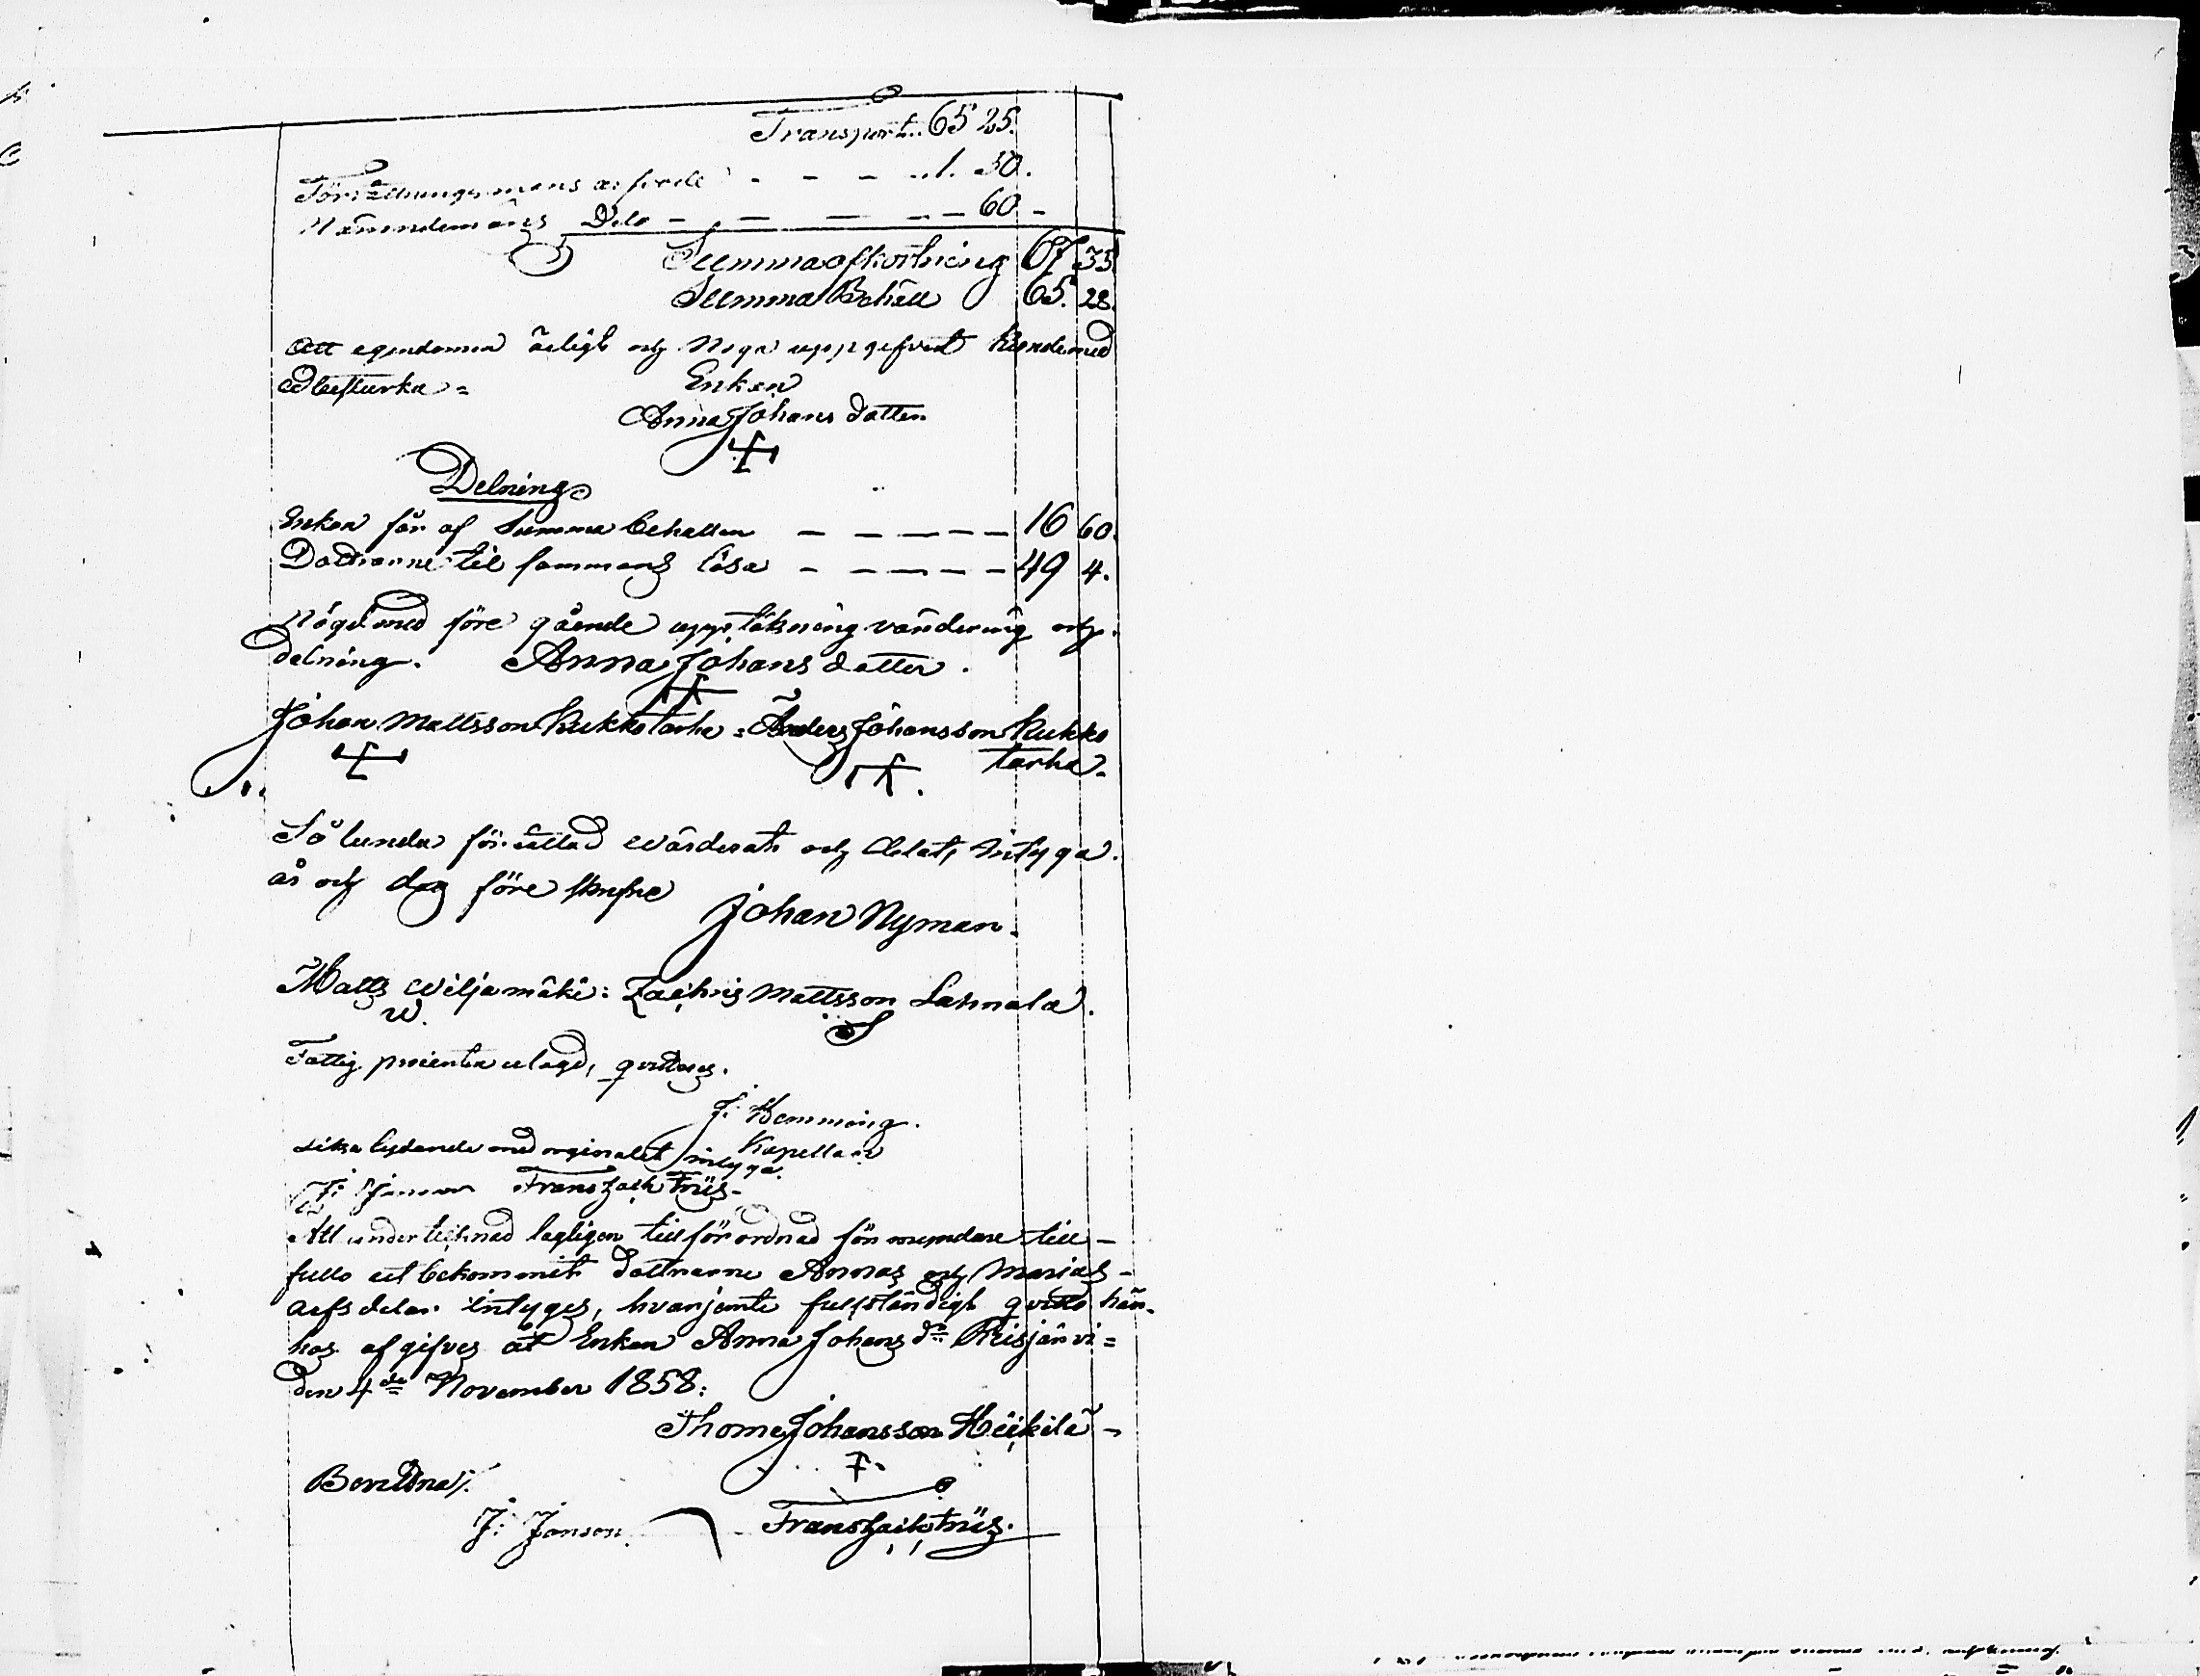 Transport.. 65 25.
Förrättningsmans arfvode - - - .. 1. 50.
Nämndemäns Dito - - - - - 60 -
Summa afkortning 67 35
Summa Behåll 65. 28.
Att egendomen ärligt och Noga uppgifvit kunde med
Ed bestyrka = Enkan
Anna Johans datter
Delning
Enkan får af Summa behallen - - - - - 16 60.
Dottrarne till sammans lösa - - - - - 49 4.
Nögd med före gående uppteckning värdering och
delning. Anna Johans datter.
Johan Mattsson Kukko tarha = Anders Johansson Kukko
tarha.
Så lunda förrättad wärderat och delat, intyga.
år och dag före skrifne
Johan Nyman.
Matts wiljamäki: Zachris Mattsson Lahnala.
W. S
Fattig procenten erlagd, qvitteras.
J. Hemming.
Kapellan
Lika lydande med orginalet intyga.
J: Janson Frans Zach Friis.
Att undertecknad lagligen tillförordnad förmyndare till-
fullo utbekommit dottrarne Annas och Marias-
arfs delar intygas, hvarjemte fullständigt qvitto här-
hos afgifves åt Enkan Anna Johans dr Reisjärvi =
den 4de November 1858:
Thomas Johansson Heikilä -
Bevittna/.
J: Janson. Frans Zach Friis.